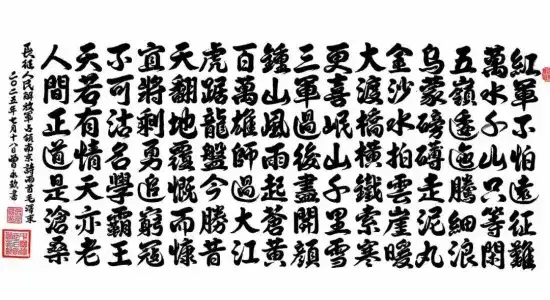 紅軍不怕遠征難
萬水千山只等閑
五嶺逶迤騰細浪
烏蒙磅礴走泥丸
金沙水拍雲崖暖
大渡橋橫鐵索寒
更喜岷山千里雪
三軍過後盡開顏
鍾山風雨起蒼黃
百萬雄師過大江
虎踞龍盤今勝昔
天翻地覆慨而慷
宜將剩勇追窮寇
不可沽名學霸王
天若有情天亦老
人間正道是滄桑
長征人民解放軍占領南京詩兩首毛澤東
二〇二五年七月十八日曾永